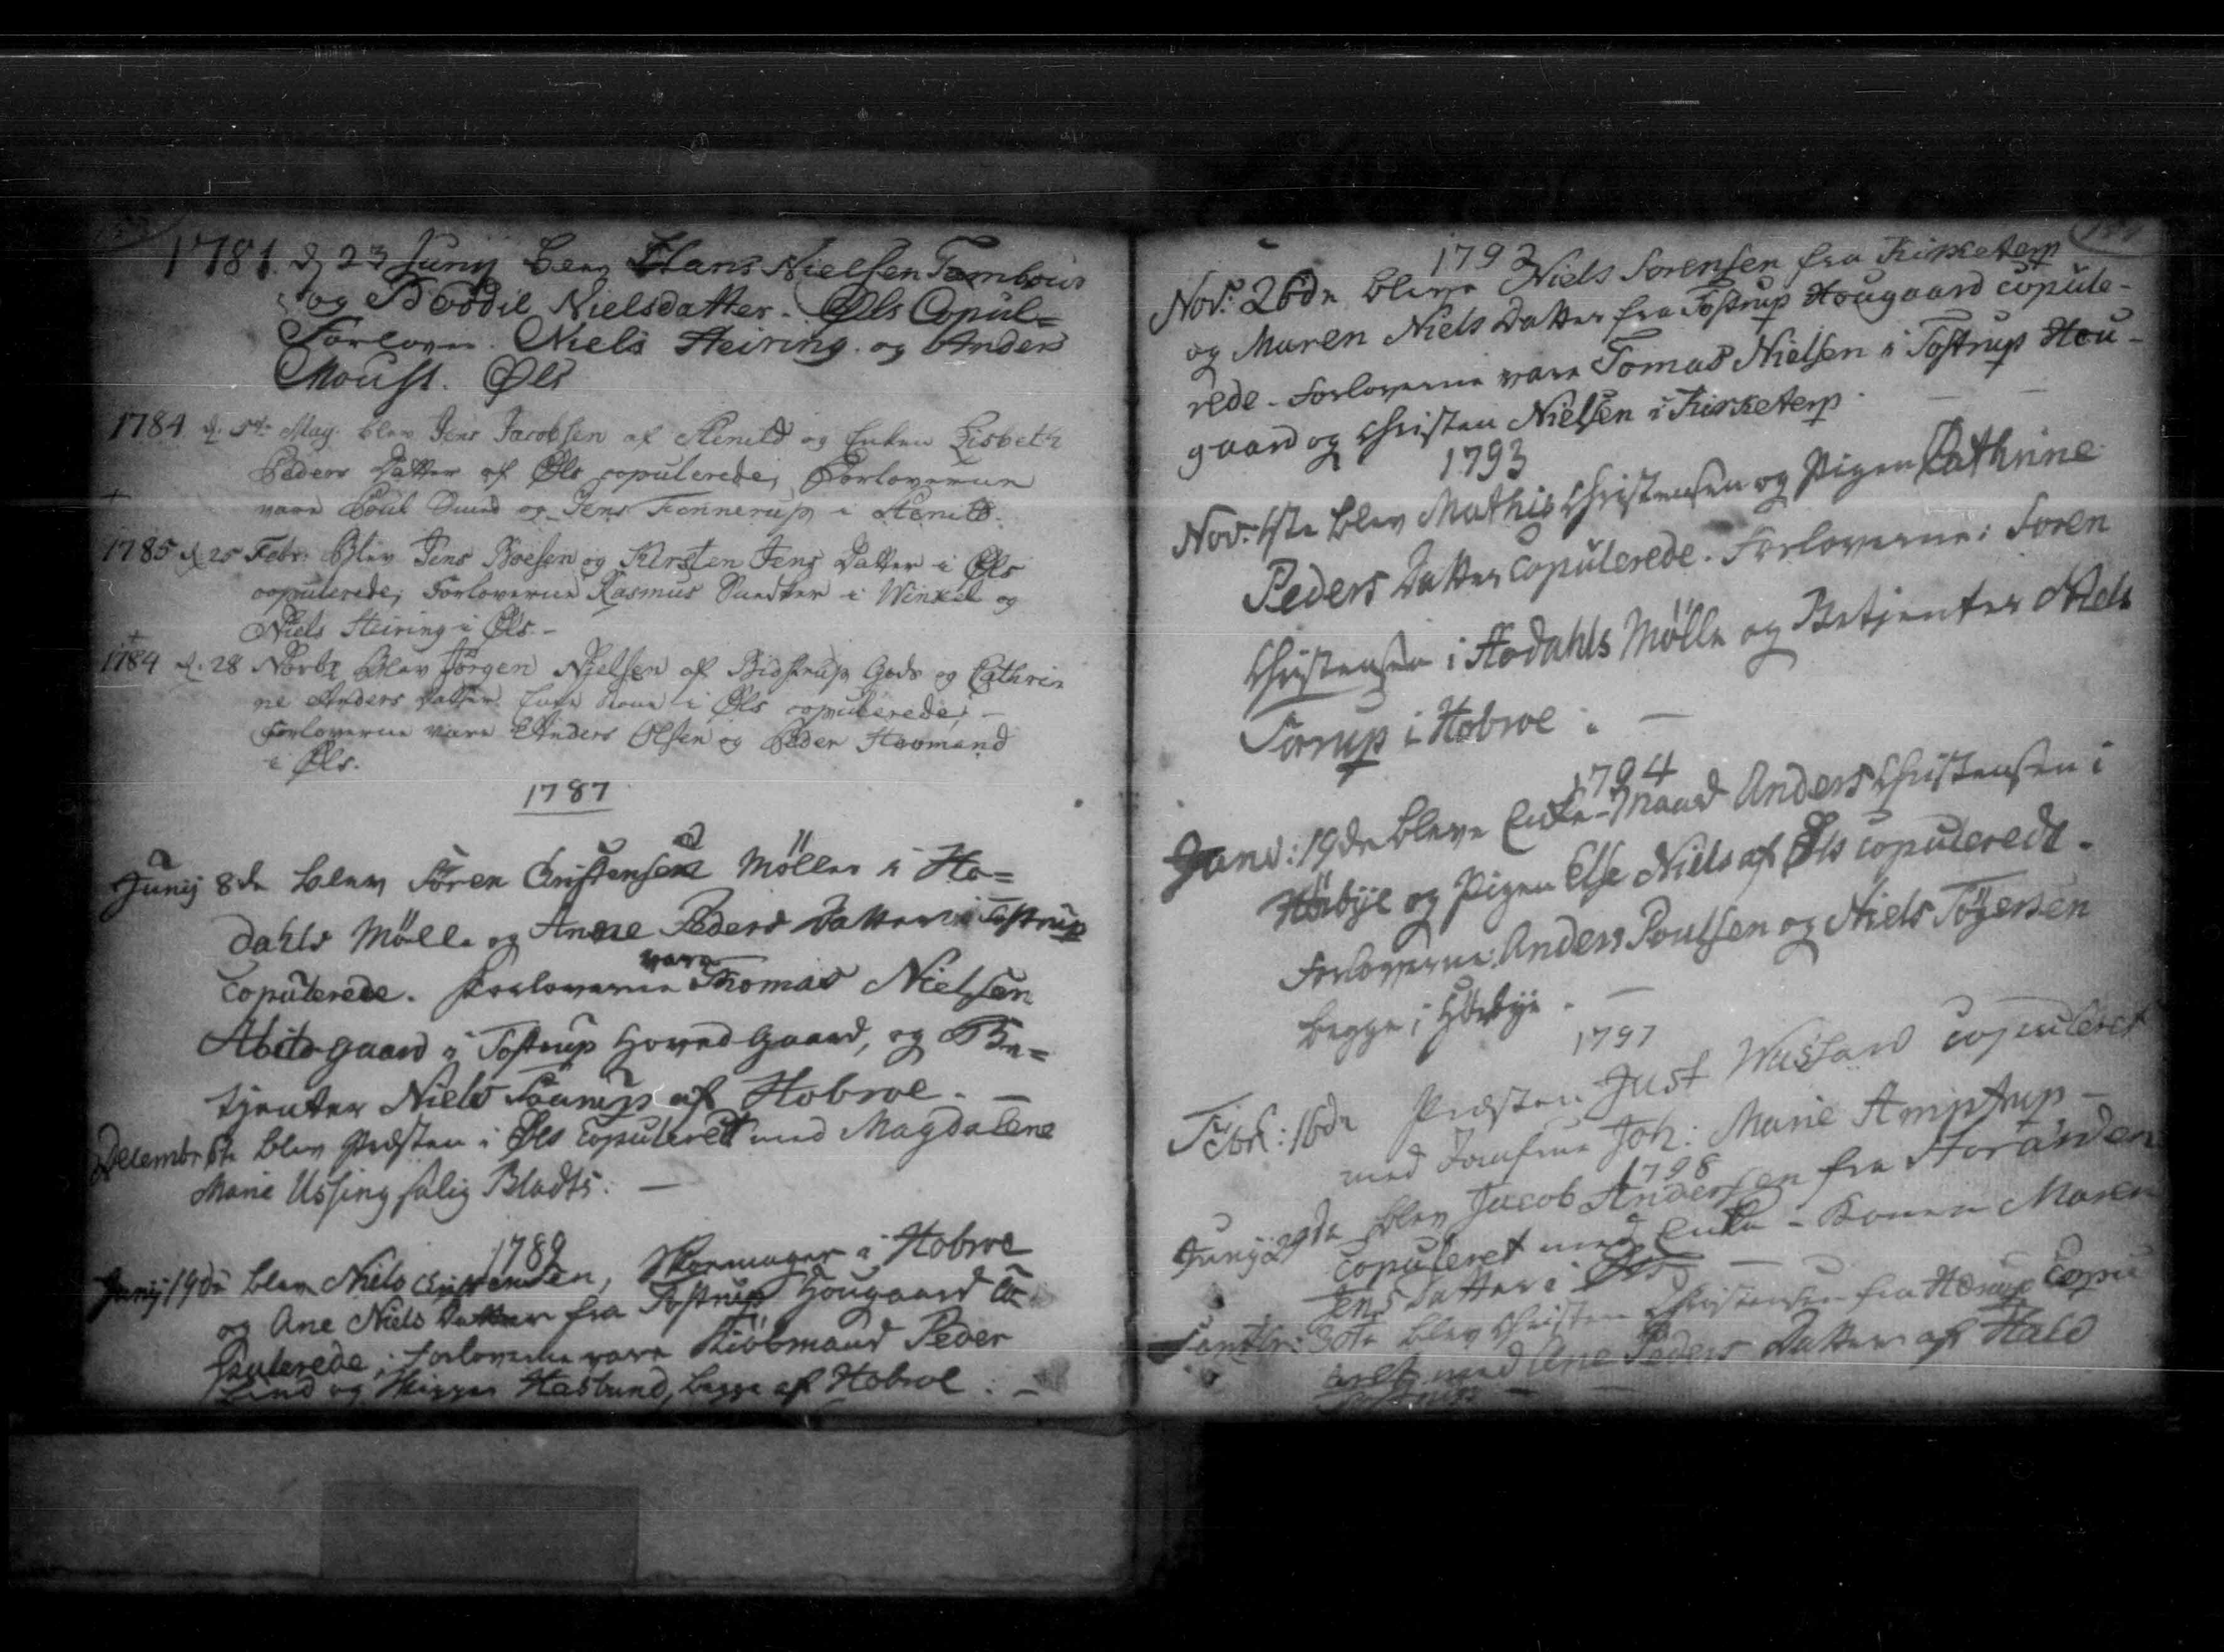 1781. d 23 Junij blev Hans Nielsen Tambour
og Boddil Nielsdatter. Øls Copul=
Forlover. Niels Heiring. og Anders
Moust. Øls
1784 d. 5te May. blev Jens Jacobsen af Stenild og Enken Lisbeth
Peders Datter af Øls copulerede, Forloverne
vare Poul Sund og Jens Tonnerup i Stenild.
1785 d 25 Febr: Blev Jens Boesen og Kirsten Jens Datter i Øls
copulerede, Forloverne Rasmus i Winkel og
Niels Heiring i Øls. -
1784 d. 28 Novbr Blev Jørgen Nielsen af Bidstrup Gods og Cathri=
ne Anders Datter Enke Kone i Øls copulerede, -
Forloverne vare Anders Olsen og Peder Hovmand
i Øls.
1787
Junij 8de blev Søren Christensen Møller i Ho=
dahls Mølle og Anne Peders Datter i Tostrup
copulerede. Forloverne vare Thomas Nielsen
Abildgaard i Tostrup Hoved Gaard, og Be=
tjenter Niels Saarup af Hobroe. -
Decembr 6te blev Præsten i Øls copuleret med Magdalene
Marie Ussing salig Bladts. -
1789
Junij 19de blev Niels Christensen, Skoemager i Hobroe
og Ane Niels Datter fra Tostrup Hougaard Co
pulerede, Forloverne vare Kiöbmand Peder
Lind og Skipper Haslund, begge af Hobroe. -
1792
Nov: 26de bleve Niels Sorensen fra Kirketerp
og Maren Niels Datter fra Tostrup Hougaard copule-
rede. Forloverne vare Tomas Nielsen i Tostrup Hou-
gaard og Christen Nielsen i Kirketerp. -
1793
Nov: blev Mathis Christensen og Pigen Cathrine
Peders Datter copulerede. Forloverne: Soren
Christensen i Hodahls Mölle og Betjenter Niels
Sorrup i Hobroe. -
1794
Janv: 19de bleve Enke-Mand Anders Christensen i
Hörbÿe og Pigen Else Niels af Øls copulerede.
Forloverne: Anders Poulsen og Niels Tögersen
begge i Hörbÿe. -
1797
Febr: 16de Præsten Just copuleret
med Jomfrue Joh: Marie Amptrup -
1798
Junij 29de blev Jacob Andersen fra
Copuleret med Enke-Konen Maren
Jens Datter i Øls -
30te blev Christen Christensen fra Hörup Copu
med Ane Peders Datter af Hald
Tostrup -